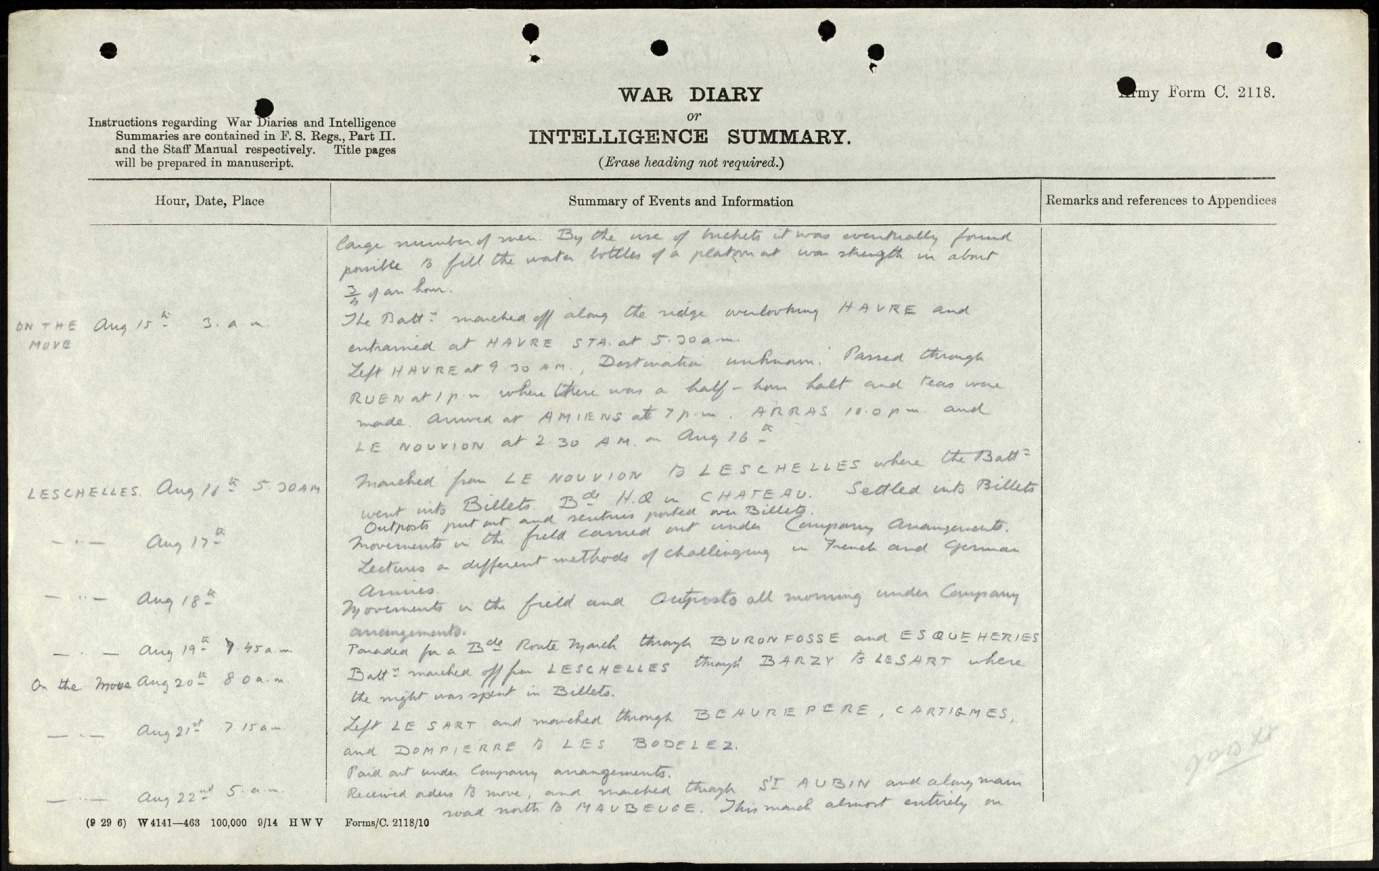 Army Form C. 2118.
WAR DIARY
or
INTELLIGENCE SUMMARY.
(Erase heading not required.)
Instructions regarding War Diaries and Intelligence
Summaries are contained in F. S. Regs., Part II.
and the Staff Manual respectively. Title pages
will be prepared in manuscript.
Hour, Date, Place
Summary of Events and Information
Remarks and references to Appendices
large number of men. By the use of buckets it was eventually found
possible to fill the water bottles of a platoon at war strength in about
3/4 of an hour.
ON THE MOVE Aug 15th 3. a m
The Battn marched off along the ridge overlooking HAVRE and
entrained at HAVRE STA. at 5.30 a.m.
Left HAVRE at 9 30 AM., Destination unknown. Passed through
RUEN at 1 p.m where there was a half-hour halt and teas were
made. Arrived at AMIENS at 7 p.m. ARRAS 10.0 p m. and
LE NOUVION at 2.30 AM. on Aug 16th
LESCHELLES. Aug 16th 5 30AM
Marched from LE NOUVION to LESCHELLES where the Battn
went into Billets. Bde H.Q in CHATEAU. Settled into Billets
Outposts put out and sentries posted over Billets.
— · — Aug 17th
Movements in the field carried out under Company Arrangements.
Lectures on different methods of challenging in French and German
Armies.
— · · — Aug 18th
Movements in the field and Outposts all morning under Company
arrangements.
— . — Aug 19th 7.45 a m
Paraded for a Bde Route March through BURONFOSSE and ESQUEHERIES
On the Move Aug 20th 8 0 a.m.
Battn marched off from LESCHELLES through BARZY to LESART where
the night was spent in Billets.
— . — Aug 21st 7 15 am
Left LE SART and marched through BEAUREPERE, CARTIGMES,
and DOMPIERRE to LES BODELEZ.
Paid out under Company arrangements.
— · · — Aug 22nd 5. a.m.
Received orders to move, and marched through ST AUBIN and along main
road north to MAUBEUGE. This march almost entirely on
(9 29 6) W 4141—463 100,000 9/14 H W V Forms/C. 2118/10